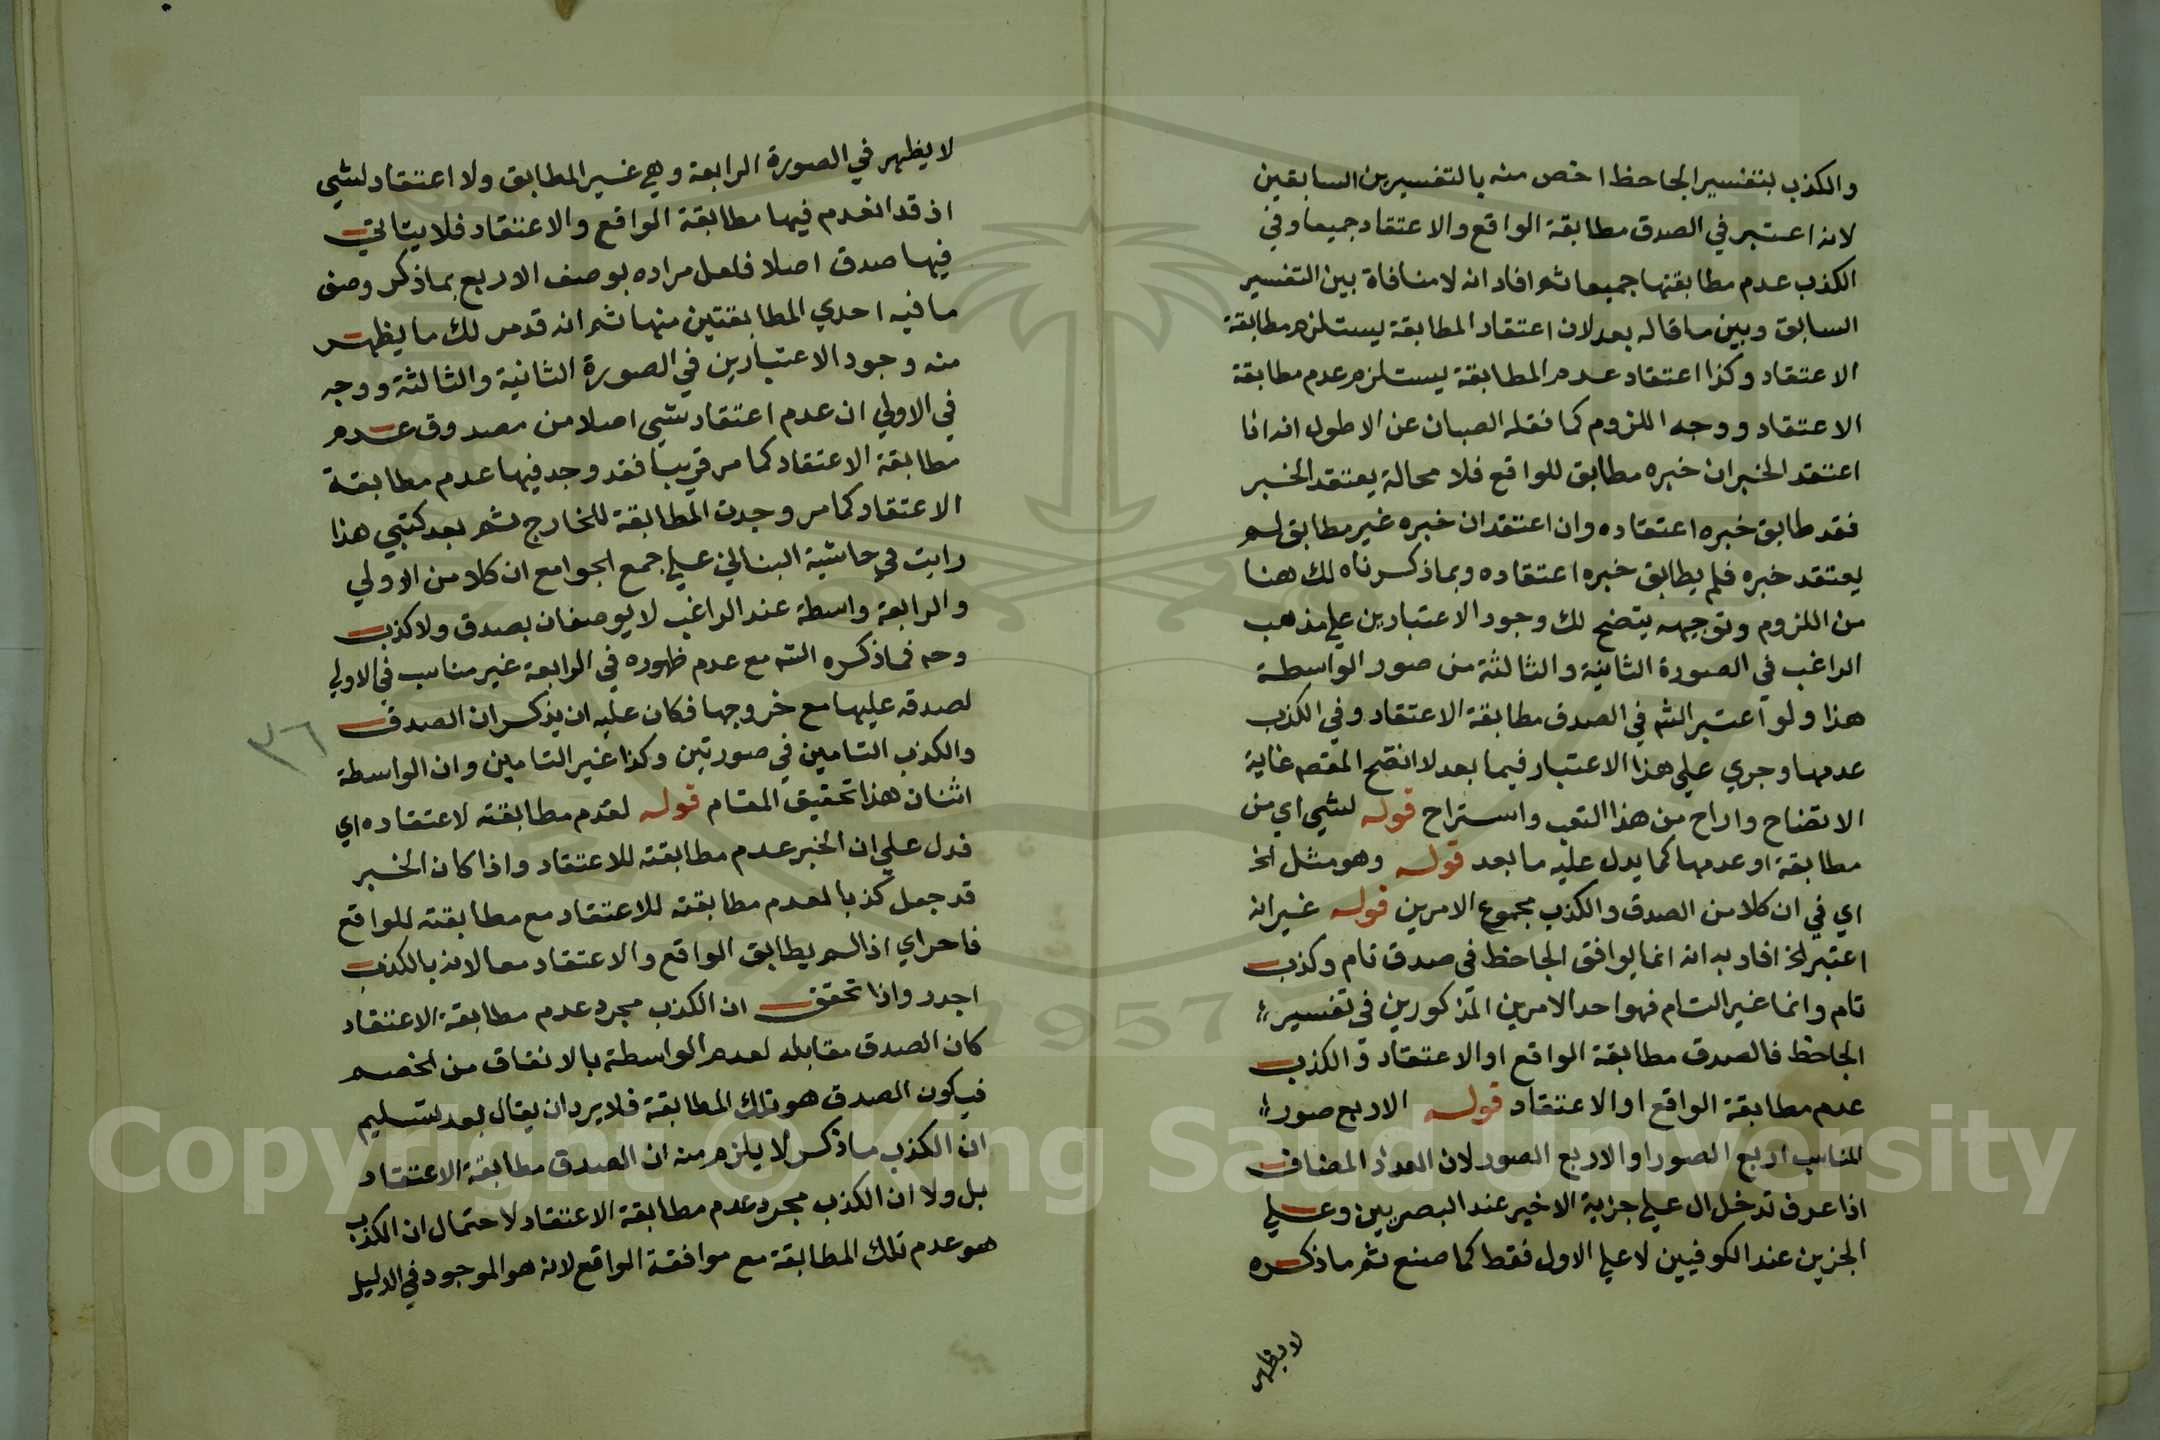 والكذب بتفسير الجاحظ اخص منه بالتفسيرين السابقين
لانه اعتبر في الصدق مطابقة الواقع والاعتقاد جميعا وفي
الكذب عدم مطابقتها جميعا ثم افاد انه لا منافاة بين التفسير
السابق وبين ما قاله بعد لان اعتقاد المطابقة يستلزم مطابقة
الاعتقاد وكذا اعتقاد عدم المطابقة يستلزم عدم مطابقة
الاعتقاد ووجه اللزوم كما نقله الصبان عن الاطول انه اذا
اعتقد المخبر ان خبره مطابق للواقع فلا محالة يعتقد الخبر
فقد طابق خبره اعتقاده وان اعتقد ان خبره غير مطابق لم
يعتقد خبره فلم يطابق خبره اعتقاده وبما ذكرناه لك هنا
من اللزوم وتوجيهه يتضح لك وجود الاعتبارين علي مذهب
الراغب في الصورة الثانية والثالثة من صور الواسطة
هذا ولو اعتبر الشه في الصدق مطابقة الاعتقاد وفي الكذب
عدمها وجري علي هذا الاعتبار فيما بعد لاتضح المقصم غاية
الاتضاح واراح من هذا التعب واستراح قوله لشيي اي من
مطابقة او عدمها كما يدل عليه ما بعد قوله وهو مثل الخ
اي في ان كلا من الصدق والكذب مجموع الامرين قوله غير انه
اعتبر الخ افاد به انه انما يوافق الجاحظ في صدق تام وكذب
تام وانما غير التام فهو احد الامرين المذكورين في تفسير
الجاحظ فالصدق مطابقة الواقع او الاعتقاد والكذب
عدم مطابقة الواقع او الاعتقاد قوله الاربع صور
المناسب اربع الصور او الاربع الصور لان العدد المضاف
اذا عرف تدخل ال علي جزيه الاخير عند البصريين وعلي
الجزين عند الكوفيين لا علي الاول فقط كما صنع ثم ما ذكره
لا يظهر
لا يظهر في الصورة الرابعة وهي غير المطابق ولا اعتقاد لشيي
اذ قد انعدم فيها مطابقة الواقع والاعتقاد فلا يتاتي
فيها صدق اصلا فلعل مراده بوصف الاربع بما ذكر وصف
ما فيه احدي المطابقتين منها ثم انه قد مر لك ما يظهر
منه وجود الاعتبارين في الصورة الثانية والثالثة ووجه
في الاولي ان عدم اعتقاد شيي اصلا من مصدوق عدم
مطابقة الاعتقاد كما مر قريبا فقد وجد فيها عدم مطابقة
الاعتقاد كما مر وجدت المطابقة للخارج ثم بعد كتبي هذا
رايت في حاشية البناني علي جمع الجوامع ان كلا من الاولي
والرابعة واسطة عند الراغب لا يوصفان بصدق ولا كذب
وحه فما ذكره الشه مع عدم ظهوره في الرابعة غير مناسب في الاولي
لصدقه عليها مع خروجها فكان عليه ان يذكر ان الصدق
والكذب التامين في صورتين وكذا غير التامين وان الواسطة
اثنان هذا تحقيق المقام قوله لعدم مطابقته لاعتقاده اي
فدل علي ان الخبر عدم مطابقته للاعتقاد واذا كان الخبر
قد جعل كذبا لعدم مطابقته للاعتقاد مع مطابقته للواقع
فاحراي اذا لم يطابق الواقع والاعتقاد معا لانه بالكذب
اجدر واذا تحقق ان الكذب مجرد عدم مطابقة الاعتقاد
كان الصدق مقابله لعدم الواسطة بالاتفاق من الخصم
فيكون الصدق هو تلك المطابقة فلا يرد ان يقال بعد تسليم
ان الكذب ما ذكر لا يلزم منه ان الصدق مطابقة الاعتقاد
بل ولا ان الكذب مجرد عدم مطابقة الاعتقاد لاحتمال ان الكذب
هو عدم تلك المطابقة مع موافقة الواقع لانه هو الموجود في الدليل
٣٦
1957
Copyright © King Saud University